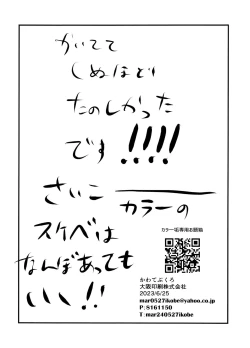 かいてて
しぬほど
たのしかった
です!!!!
さいこー
カラーの
スケベは
なんぼあっても
いい!!
カラー垢専用お題箱
かわてぶくろ
大阪印刷株式会社
2023/6/25
mar0527ikobe@yahoo.co.jp
P:8161150
T:mar240527ikobe